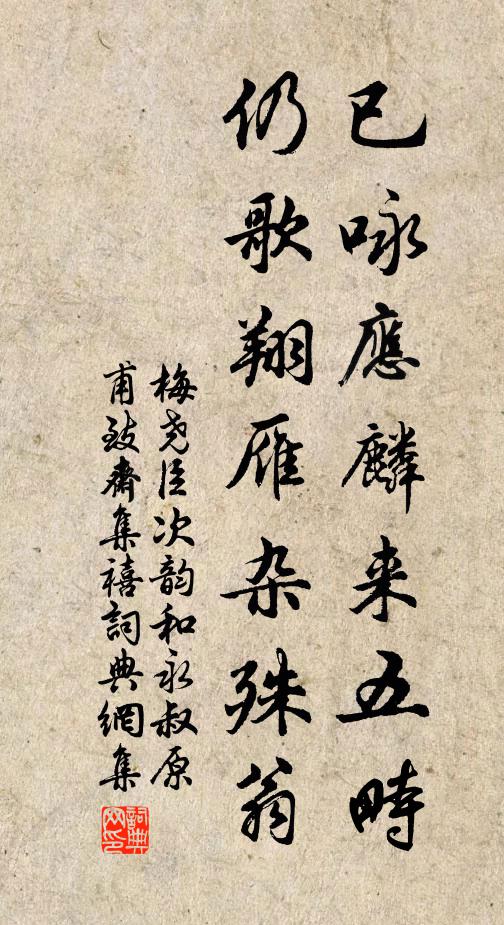 已咏應麟来五畤
仍歌翔雁杂殊翁
梅尧臣次韵和永叔原
甫致齋集禧詞典網集
詞典网印